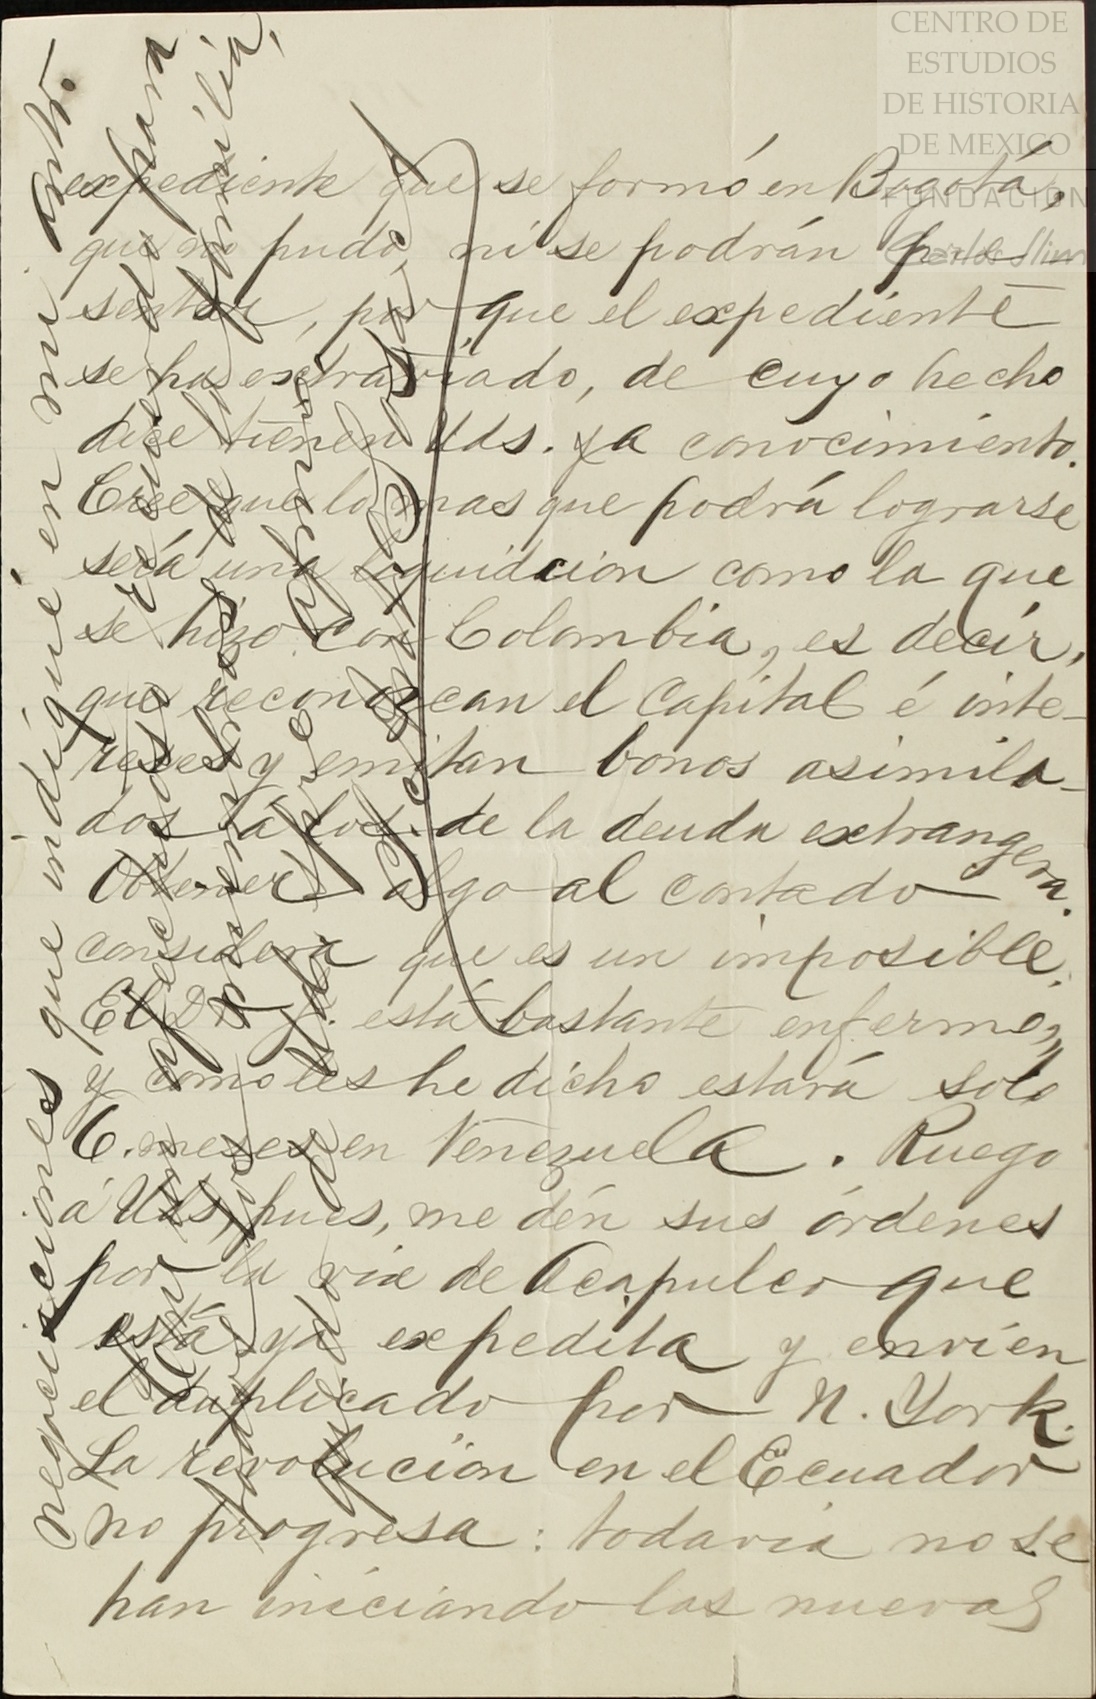 CENTRO DE
ESTUDIOS
DE HISTORIA
DE MEXICO
FUNDACIÓN
Carlos Slim
expediente que se formó en Bogotá,
que no pudo, ni se podrán pre-
sentar, por que el expediente
se ha extraviado, de cuyo hecho
dice tienen Uds. ya conocimiento.
Cree que lo mas que podrá lograrse
será una liquidacion como la que
se hizo con Colombia, es decir,
que reconozcan el Capital é inte-
reses y emitan bonos asimila-
dos á los de la deuda extrangera.
Obtener algo al contado
considera que es un imposible.
El Dr. está bastante enfermo,
y como les he dicho estará solo
6. meses en Venezuela. Ruego
á Uds, pues, me dén sus órdenes
por la via de Acapulco que
está ya expedita y envíen
el duplicado por N. York.
La revolución en el Ecuador
no progresa: todavia no se
han iniciando las nuevas
negociaciones que indiqué en mi antr.
Con mis afectuosos recuerdos para
padres y hermanos de la familia,
quedo de Uds. afmo.